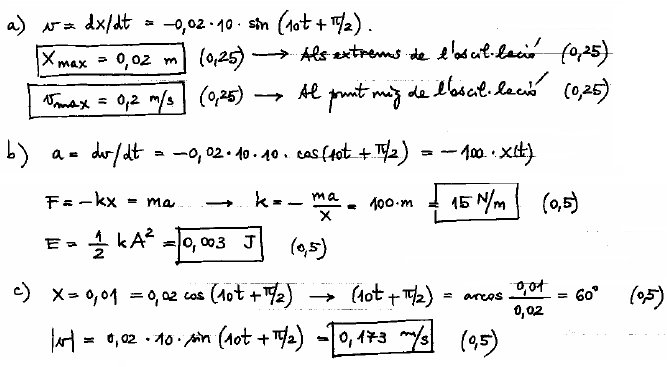 a) v = dx/dt = -0,02·10· sin (10t + π/2).
Xmax = 0,02 m (0,25) → Als extrems de l'oscil·lació (0,25)
vmax = 0,2 m/s (0,25) → Al punt mig de l'oscil·lació (0,25)
b) a = dv/dt = -0,02·10·10· cos(10t + π/2) = -100· x(t)
F = -kx = ma → k = - ma/x = 100·m = 15 N/m (0,5)
E = 1/2 kA² = 0,003 J (0,5)
c) X = 0,01 = 0,02 cos (10t + π/2) → (10t + π/2) = arcos 0,01/0,02 = 60° (0,5)
|v| = 0,02 · 10 · sin (10t + π/2) = 0,173 m/s (0,5)